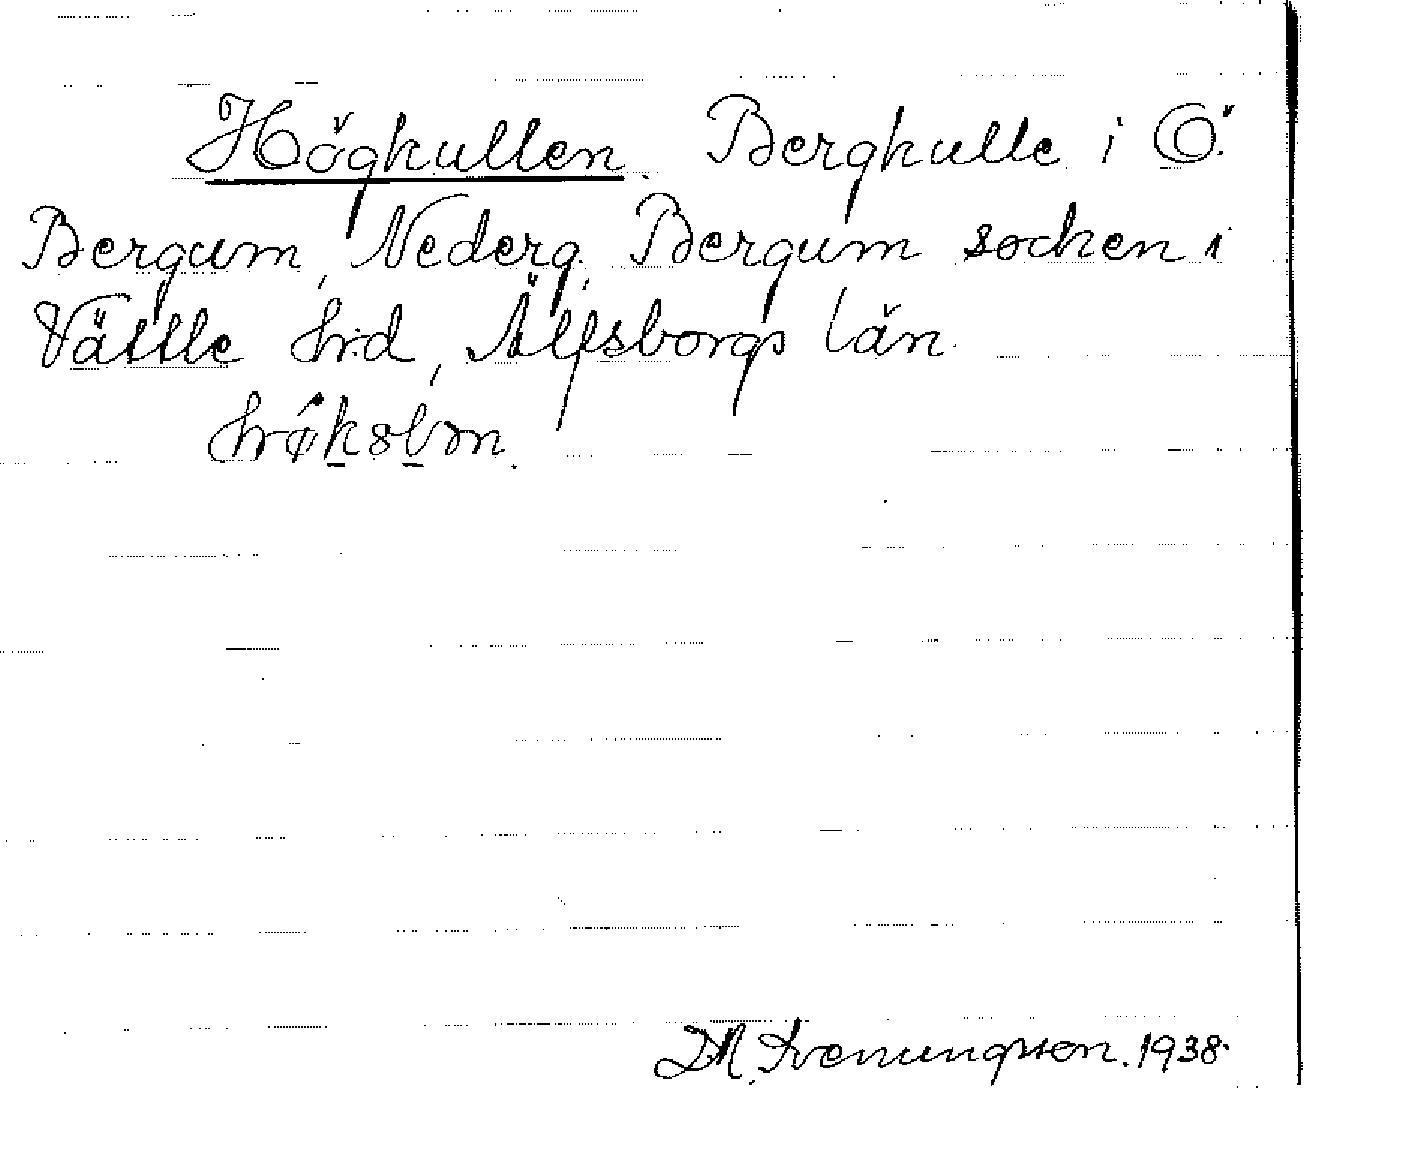 Högkullen. Bergkulle i Ö.
Bergum, Nederg., Bergum socken i
Vättle hrd, Älfsborgs län.
M. Svenungsson. 1938.